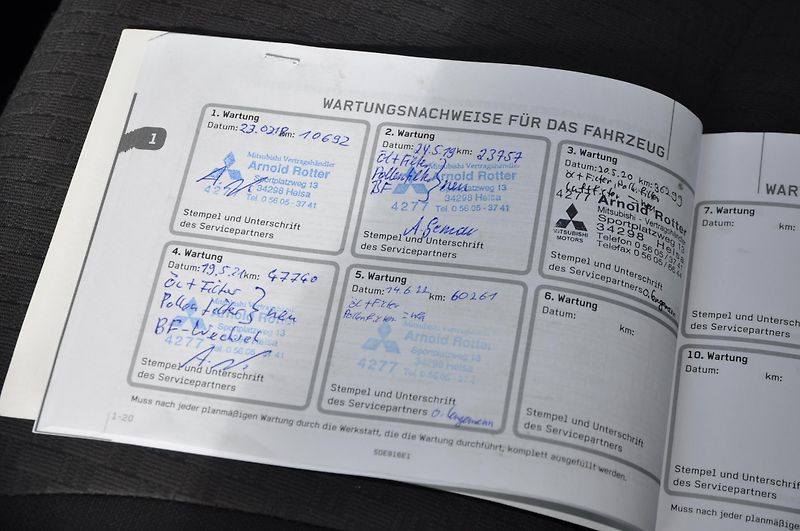 WARTUNGSNACHWEISE FÜR DAS FAHRZEUG
1
1. Wartung
Datum: 23.0218 km: 10692
Mitsubishi Vertragshändler
Arnold Rotter
Sportplatzweg 13
34298 Helsa
4277 Tel. 0 56 05 - 37 41
Stempel und Unterschrift
des Servicepartners
2. Wartung
Datum: 24.5.19 km: 23757
Öl + Filter
Pollenfilter neu
BF
Mitsubishi Vertragshändler
Arnold Rotter
Sportplatzweg 13
34298 Helsa
4277 Tel. 0 56 05 - 37 41
Stempel und Unterschrift
des Servicepartners
3. Wartung
Datum: 20.5.20 km: 36299
Öl + Filter, Poll. Filter
Luftfilter
4277 Arnold Rotter
Mitsubishi - Vertragshändler
Sportplatzweg 13
34298 Helsa
Telefon 0 56 05
Telefax 0 56 05
MITSUBISHI
MOTORS
Stempel und Unterschrift
des Servicepartners
4. Wartung
Datum: 19.5.21 km: 47740
Öl + Filter
Pollenfilter neu
BF-Wechsel
Mitsubishi Vertragshändler
Arnold Rotter
Sportplatzweg 13
34298 Helsa
4277 Tel. 0 56 05 - 37 41
Stempel und Unterschrift
des Servicepartners
5. Wartung
Datum: 14.6.22 km: 60261
Öl + Filter
Pollenfilter neu
Mitsubishi Vertragshändler
Arnold Rotter
Sportplatzweg 13
34298 Helsa
4277 Tel. 0 56 05 - 37 41
Stempel und Unterschrift
des Servicepartners
6. Wartung
Datum:
km:
Stempel und Unterschrift
des Servicepartners
Muss nach jeder planmäßigen Wartung durch die Werkstatt, die die Wartung durchführt, komplett ausgefüllt werden.
1-20
SDE916E1
WAR
7. Wartung
Datum:
km:
Stempel und Unterschrift
des Servicepartners
10. Wartung
Datum:
km:
Stempel und Unterschrift
des Servicepartners
Muss nach jeder planmäßigen